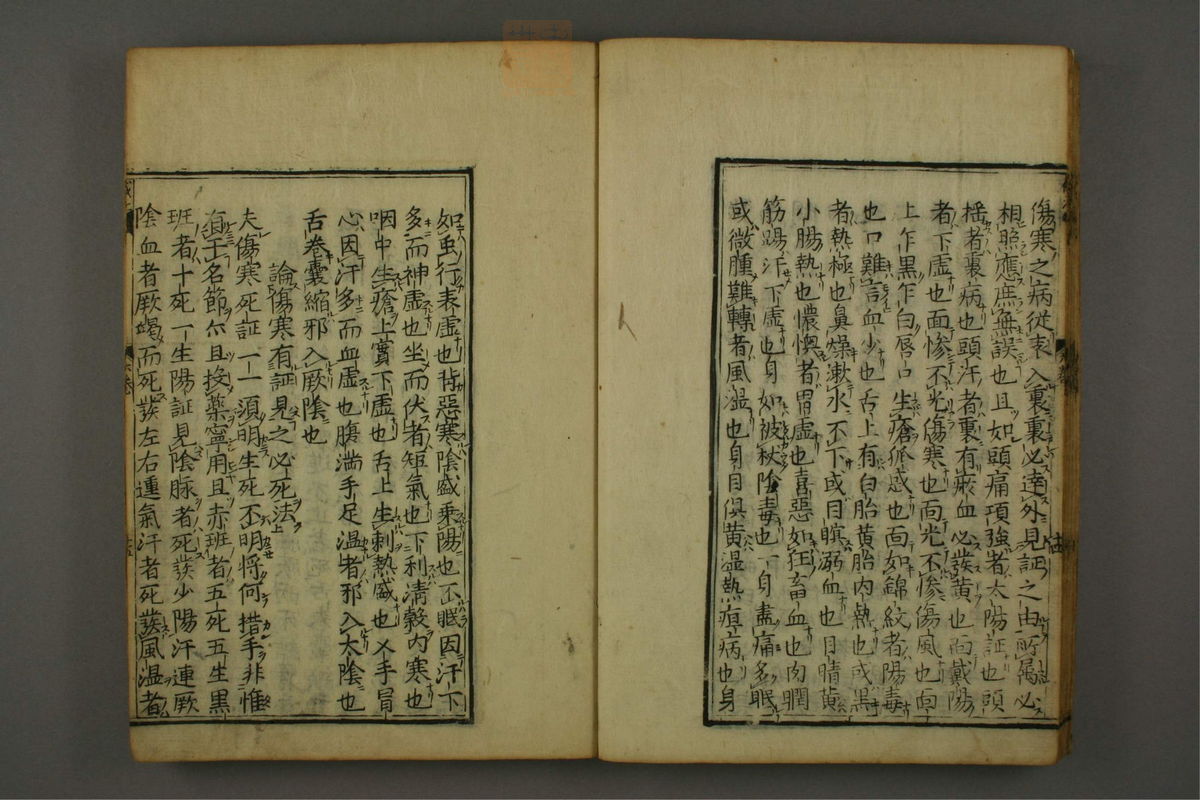 傷寒之病從表入裏裏必達外見証之由所属必
相照應庶無誤也且如頭痛項強者太陽証也頭
揺者裏病也頭汗者裏有瘀血必發黄也面戴陽
者下虚也面惨不光傷寒也面光不惨傷風也面
上乍黒乍白唇口生瘡狐惑也面如錦紋者陽毒
也口難言血少也舌上有白胎黄胎内熱也或黒
者熱極也鼻燥漱水不下或目瞑溺血也目睛黄
小腸熱也懊憹者胃虚也喜惡如狂畜血也肉瞤
筋踢汗下虚也身如被杖陰毒也一身盡痛多眠
或微腫難轉者風温也身目倶黄温熱疸病也身
如虫行表虚也背惡寒陰盛乗陽也不眠因汗下
多而神虚也坐而伏者短氣也下利清穀内寒也
咽中生瘡上實下虚也舌上生刺熱盛也叉手冒
心因汗多而血虚也腹満手足温者邪入太陰也
舌巻囊縮邪入厥陰也
論傷寒有証見之必死法
夫傷寒死証一一須明生死不明将何措手非惟
有于名節亦且投薬寧用且赤斑者五死五生黒
斑者十死一生陽証見陰脉者死發少陽汗連厥
陰血者厥竭而死發左右連氣汗者死發風温者